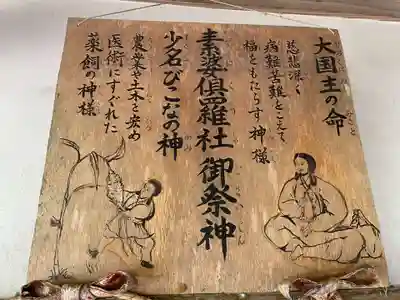 大国主の命
慈悲深く
病難苦難をこえて
福をもたらす神様
素婆倶羅社御祭神
少名びこなの神
農業や土木と安め
医術にすぐれた
薬飼の神様